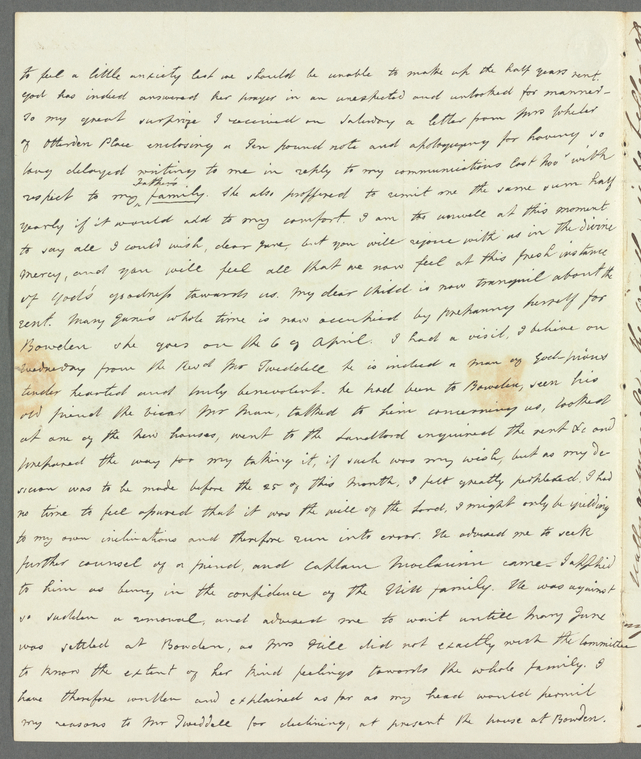 to feel a little anxiety lest we should be unable to make up the half years rent.
God has indeed answered her prayer in an unexpected and unlooked for manner–
To my great surprize I received on Saturday a letter from Mrs Wheler
of Otterden Place enclosing a Ten pound note and apologizing for having so
long delayed writing to me in reply to my communications last Novr with
Fathers
respect to my family. She also proffered to remit me the same sum half
yearly if it would add to my comfort. I am too unwell at this moment
to say all I could wish, dear Jane, but you will rejoice with us in the divine
mercy, and you will feel all that we now feel at this fresh instance
of God's goodness towards us. My dear Child is now tranquil about the
rent. Mary Jane's whole time is now occupied by preparing herself for
Bowden she goes on the 6 of April. I had a visit, I believe on
Wednesday from the Revd Mr Tweddell he is indeed a man of God–pious
tender hearted and truly benevolent. he had been to Bowden, seen his
old friend the vicar Mr Man, talked to him concerning us, looked
at one of the new houses, went to the Landlord enquired the rent &c and
prepared the way for my taking it, if such was my wish, but as my de-
scision was to be made before the 25 of this month, I felt greatly perplexed, I had
no time to feel assured that it was the will of the Lord, I might only be yielding
to my own inclinations and therefore run into error. He advised me to seek
further counsel of a friend, and Captain Maclairin came– I applied
to him as being in the confidence of the Hill family. He was against
so sudden a removal, and advised me to wait untill Mary Jane
was settled at Bowden, as Mrs Hill did not exactly wish the committee
to know the extent of her kind feelings towards the whole family. I
have therefore written and explained as far as my head would permit
my reasons to Mr Tweddell for declining, at present the house at Bowden.